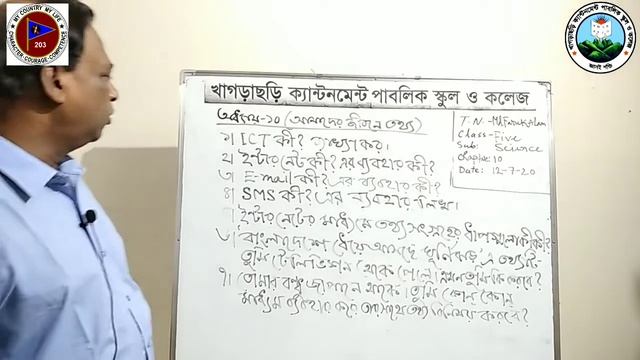 MY COUNTRY MY LIFE
203
CHARACTER COURAGE COMPETENCE
খাগড়াছড়ি ক্যান্টনমেন্ট পাবলিক স্কুল ও কলেজ
জ্ঞানই শক্তি
খাগড়াছড়ি ক্যান্টনমেন্ট পাবলিক স্কুল ও কলেজ
অধ্যায়-১০ (আমাদের জীবনে তথ্য)
১) ICT কী? ব্যাখ্যা কর।
২) ইন্টারনেট কী? এর ব্যবহার কী?
৩) E-mail কী? এর ব্যবহার কী?
৪) SMS কী? এর ব্যবহার লিখ।
ইন্টারনেটের মাধ্যমে তথ্য সংগ্রহের ধাপগুলো কী কী?
৬) বাংলাদেশে ধেয়ে আসছে ঘূর্ণিঝড়, এ তথ্যটি
তুমি টেলিভিশন থেকে পেলে। এখন তুমি কি করবে?
৭) তোমার বন্ধু জাপানে থাকে। তুমি কোন কোন
মাধ্যম ব্যবহার করে তার সাথে তথ্য বিনিময় করবে?
T.N.-
Class-Five
Sub: Science
Chapter: 10
Date: 12-7-20